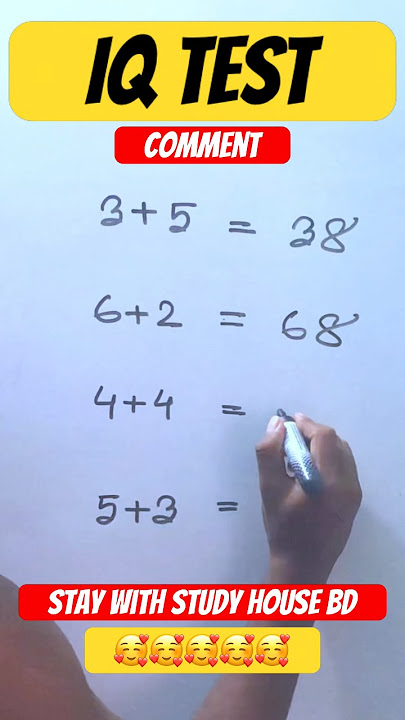 IQ TEST
COMMENT
3+5 = 38
6+2 = 68
4+4 =
5+3 =
STAY WITH STUDY HOUSE BD
🥰🥰🥰🥰🥰